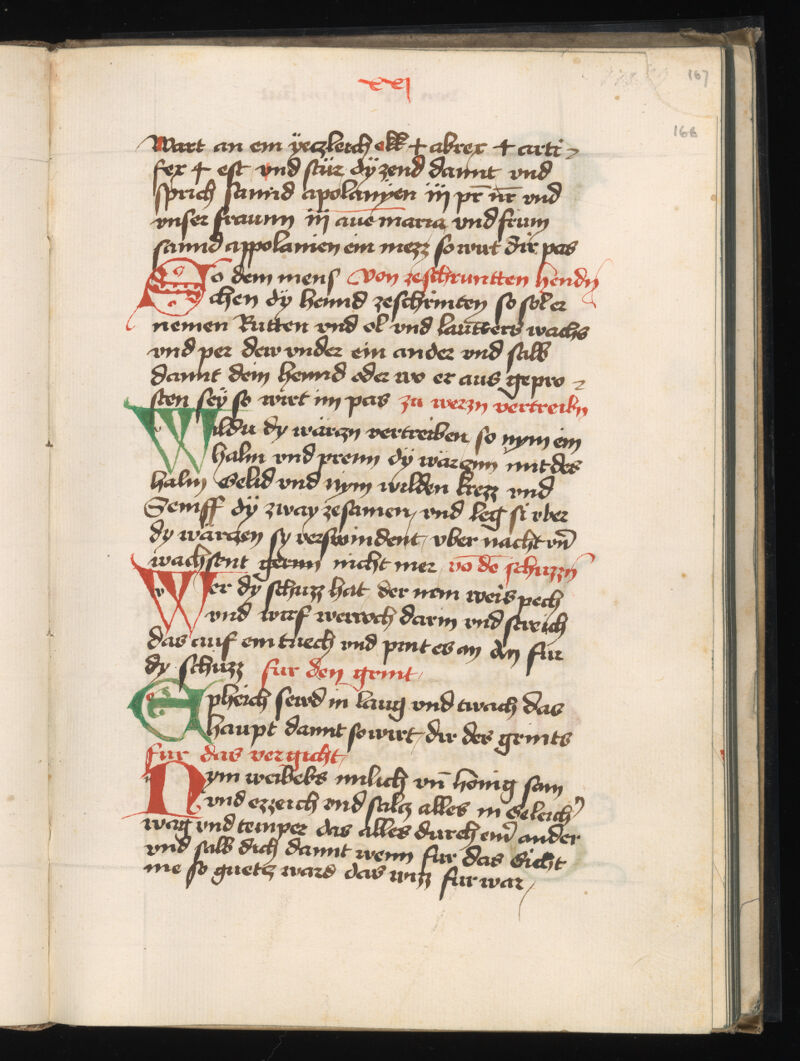 xxj
167
166
Wart an ein yeczleich ekk + abrex + arti-
fex + est vnd stür dy zend damit vnd
sprich sannd apolanyen iij pr̄ nr̄ vnd
vnser frawnn iij aue maria vnd frum
sannd appolanien ein mezz so wirt dir pas
So dem mens von zeschruntten hendn
chen dy hennd zeschrinten so sol er
nemen Rutten vnd ol vnd lautters wachs
vnd per dew vnder ein ander vnd salb
damit dein hennd oder wo er aus gepro-
sten sey so wirt im pas zu werzn vertreibn
Wildu dy wärczn vertreiben so nym ein
halm vnd prenn dy wärczen mit des
halm Gelid vnd nym wilden krezz vnd
Seniff dy zway zesamen, vnd leg si vber
dy wärczen sy verswindent, vber nacht vn̄
wachsent gernn nicht mer vō dē schuzzn
Wer dy schuzz hat der nem weis pech
vnd wirf weiroch darin vnd streich
das auf ein tuech vnd pint es an den fur
dy schuzz fur den grint
Epheich sewd in laug vnd twach das
haupt damit so wirt, dir des grints
fur das vergicht
Nym weibebs milich vn̄ honig sam
vnd ezzeich vnd salcz alles in Geleich
wag vnd temper das alles durch ein ander
vnd salb dich damit wenn fur das Gicht
nie so guetz ward das wizz furwar,